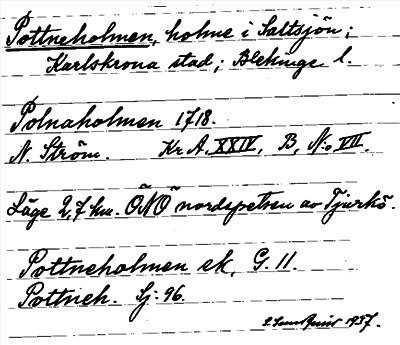 Pottneholmen, holme i Saltsjön;
Karlskrona stad; Blekinge l.
Polnaholmen 1718.
N. Ström. Kr. A. XXIV, B, N:o VII.
Läge 2,7 km. ÖNÖ nordspetsen av Tjurkö.
Pottneholmen ek, G. 11.
Pottneh. Sj: 96.
1937.